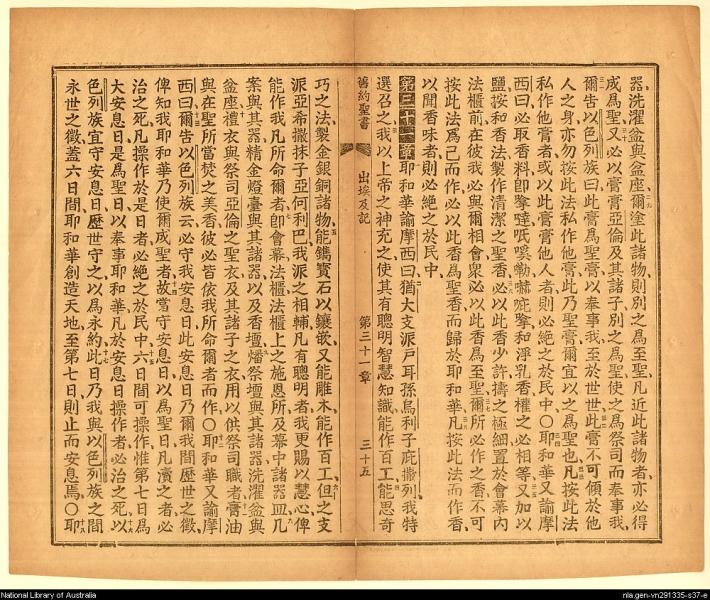 器洗濯盆與盆座爾塗此諸物則別之爲至聖凡近此諸物者亦必得
成爲聖又必以膏膏亞倫及其諸子別之爲聖使之爲祭司而奉事我
爾告以色列族曰此膏爲聖膏以奉事我至於世世此膏不可傾於他
人之身亦勿按此法私作他膏此乃聖膏爾宜以之爲聖也凡按此法
私作他膏者或以此膏膏他人者則必絕之於民中〇耶和華又諭摩
西曰必取香料卽拏噠 拏和浮乳香權之必相等又加以
鹽按和香法製作清潔之聖香必以此香少許擣之極細置於會幕內
法櫃前在彼我必與爾相會衆必以此香爲至聖爾所必作之香不可
按此法爲己而作必以此香爲聖香而歸於耶和華凡按此法而作香
以聞香味者則必絕之於民中
第三十一章耶和華諭摩西曰猶大支派戶耳孫烏利子庇撒列我特
選召之我以上帝之神充之使其有聰明智慧知識能作百工能思奇
舊約聖書 出埃及記 第三十一章 三十五
巧之法製金銀銅諸物能鐫寶石以鑲嵌又能雕木能作百工但之支
派亞希撒抹子亞何利巴我派之相輔凡有聰明者我更賜以慧心俾
能作我凡所命爾者卽會幕法櫃櫃上之施恩所及幕中諸器皿几
案與其器精金燈臺與其諸器以及香壇燔祭壇與其諸器洗濯盆與
盆座禮衣與祭司亞倫之聖衣及其諸子之衣用以供祭司職者膏油
與在聖所當焚之美香彼必皆依我所命爾者而作〇耶和華又諭摩
西曰爾告以色列族云必守我安息日此安息日乃爾我間歷世之徵
俾知我耶和華乃使爾成聖者故當守安息日以爲聖日凡瀆之者必
治之死凡操作於是日者必絕之於民中六日間可操作惟第七日爲
大安息日是爲聖日以奉事耶和華凡於安息日操作者必治之死以
色列族宜守安息日歷世守之以爲永約此日乃我與以色列族之間
永世之徵蓋六日間耶和華創造天地至第七日則止而安息焉〇耶
National Library of Australia
nla.gen-vn291335-s37-e